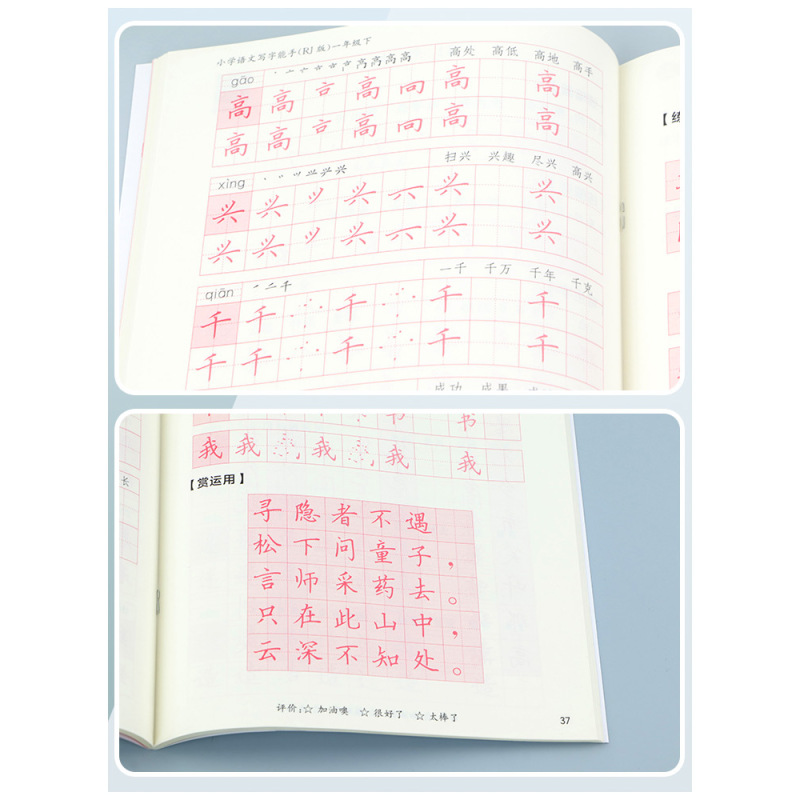 小学语文写字能手(RJ版)一年级下
gāo 高处 高低 高地 高手
高 高 高 高 高
高 高 高 高 高
【练
xìng 扫兴 兴趣 尽兴 高兴
兴 兴 兴 兴 兴
兴 兴 兴 兴 兴
qiān 一千 千万 千年 千克
千 千 千 千 千
千 千 千 千 千
成功 成果
书 书
我 我 我 我 我
长
【赏运用】
寻隐者不遇
松下问童子，
言师采药去。
只在此山中，
云深不知处。
评价:☆ 加油噢 ☆ 很好了 ☆ 太棒了
37